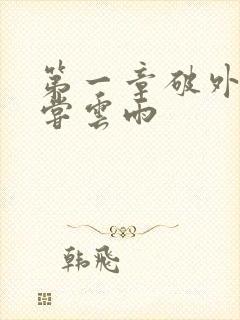 第一章破外
尝雲雨
韩飛